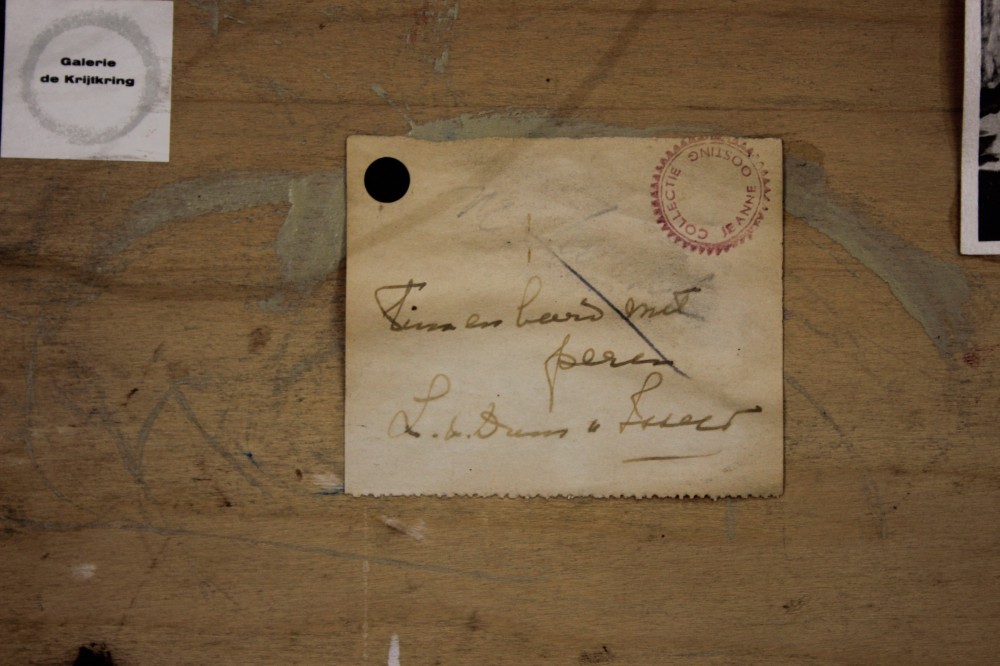 Galerie
de Krijtkring
COLLECTIE JEANNE OOSTING
Tinnen bord met
peren
L. v. Dam v Isselt